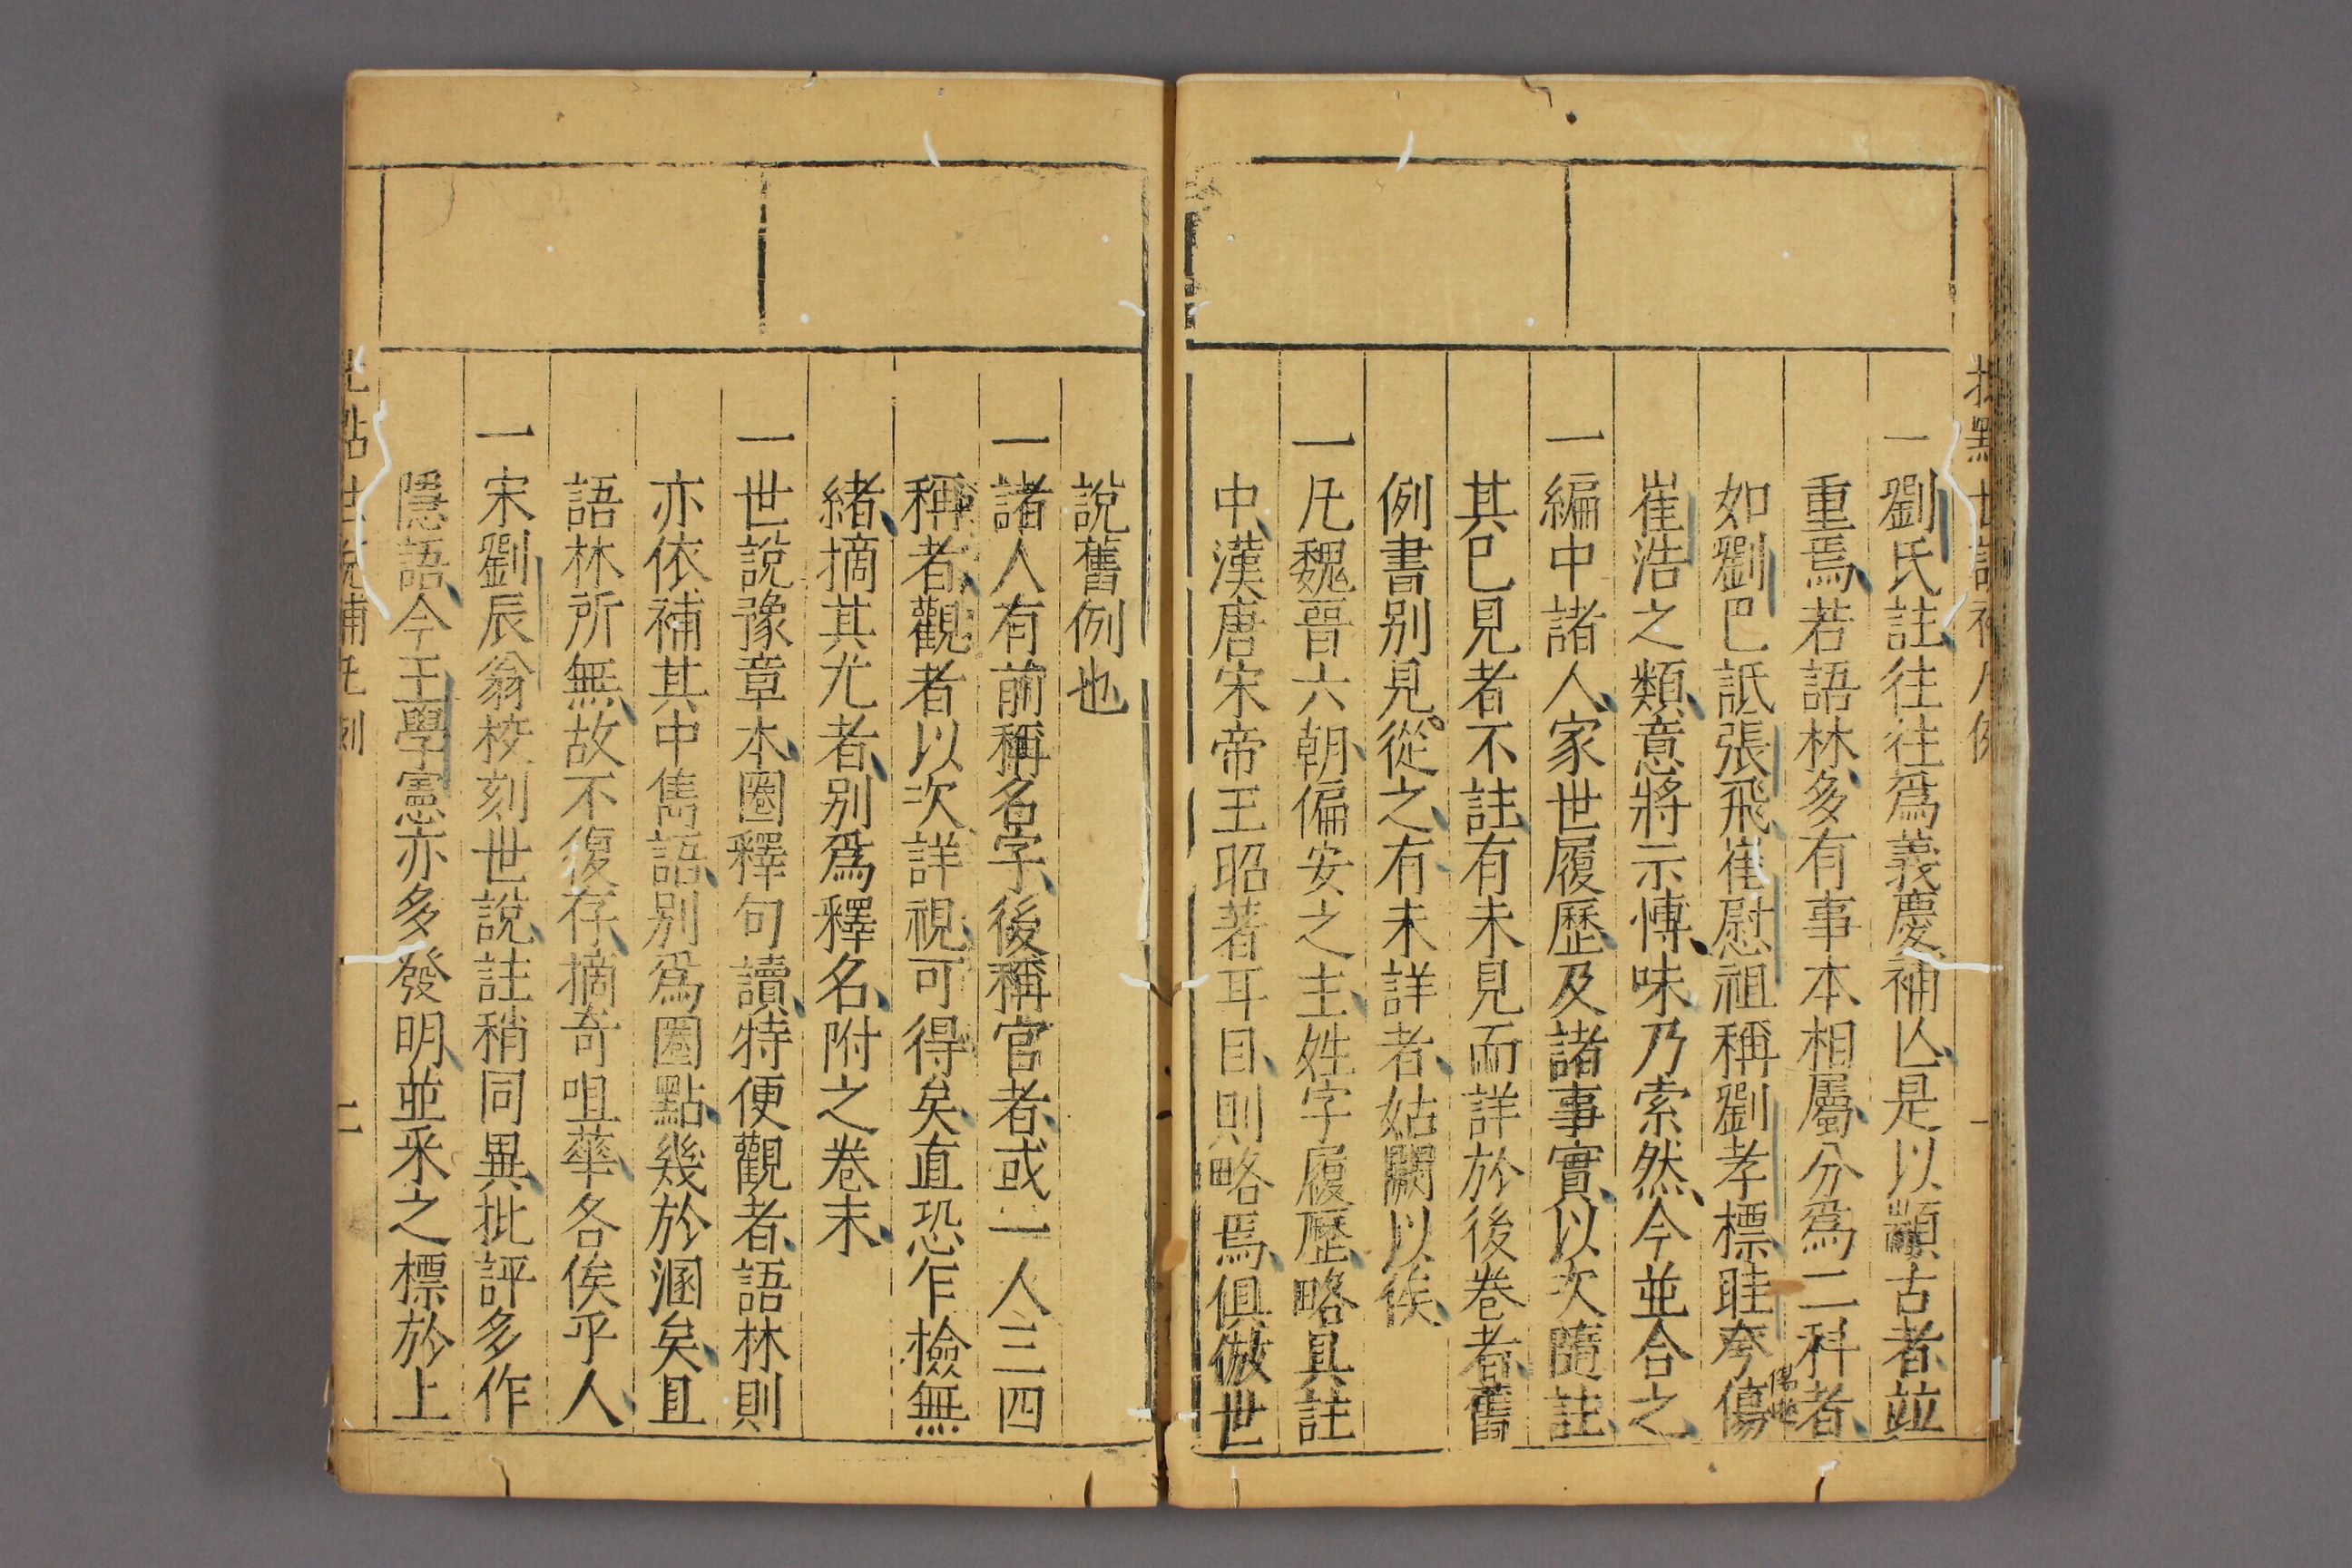 一劉氏註往往爲義慶補亾是以顓古者並
重焉若語林多有事本相屬分爲二科者
如劉巴詆張飛崔慰祖稱劉孝標眭夸傷
崔浩之類意將示愽味乃索然今並合之
一編中諸人家世履歷及諸事實以次隨註
其巳見者不註有未見而詳於後卷者舊
例書别見從之有未詳者姑闕以俟
一凡魏晉六朝偏安之主姓字履歷略具註
中漢唐宋帝王昭著耳目則略焉俱倣世
說舊例也
一諸人有前稱名字後稱官者或一人三四
稱者觀者以次詳視可得矣直恐乍檢無
緒摘其尤者别爲釋名附之卷末
一世說豫章本圈釋句讀特便觀者語林則
亦依補其中雋語别爲圈點幾於溷矣且
語林所無故不復存摘奇咀華各俟乎人
一宋劉辰翁校刻世說註稍同異批評多作
隱語今王學憲亦多發明並釆之標於上
二